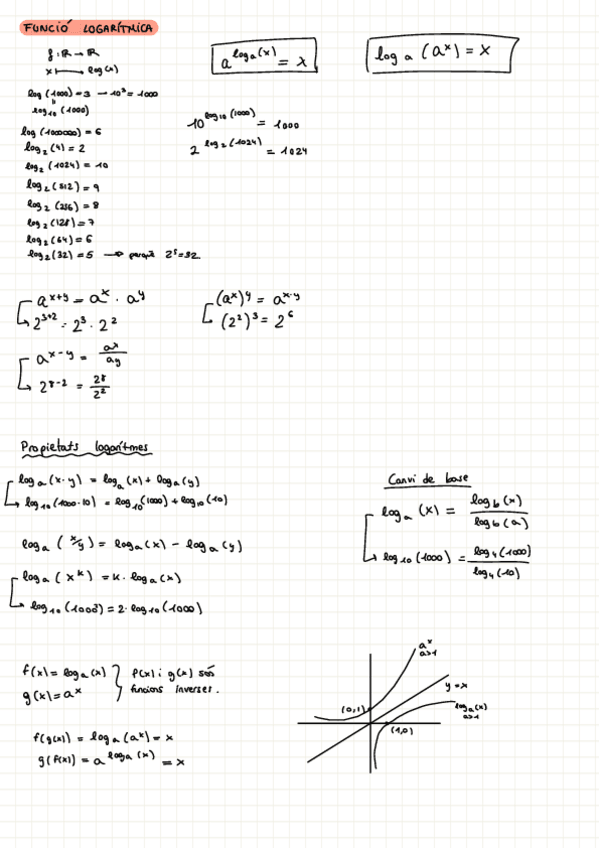 FUNCIÓ LOGARÍTMICA
f: ℝ → ℝ
x ⟼ log(x)
a^{log_a(x)} = x
log_a (a^x) = x
log (1000) = 3 → 10³ = 1000
log_10 (1000)
log (1000000) = 6
log_2 (4) = 2
log_2 (1024) = 10
log_2 (512) = 9
log_2 (256) = 8
log_2 (128) = 7
log_2 (64) = 6
log_2 (32) = 5 → perquè 2⁵ = 32
10^{log_10 (1000)} = 1000
2^{log_2 (1024)} = 1024
a^{x+y} = a^x · a^y
2^{3+2} = 2³ · 2²
(a^x)^y = a^{x·y}
(2²)³ = 2⁶
a^{x-y} = a^x/a^y
2^{8-2} = 2⁸/2²
Propietats logarítmes
log_a (x·y) = log_a (x) + log_a (y)
log_10 (1000·10) = log_10 (1000) + log_10 (10)
log_a (x/y) = log_a (x) - log_a (y)
log_a (x^k) = k · log_a (x)
log_10 (1000²) = 2 · log_10 (1000)
Canvi de base
log_a (x) = log_b (x) / log_b (a)
log_10 (1000) = log_4 (1000) / log_4 (10)
f(x) = log_a (x)
g(x) = a^x
f(x) i g(x) són
funcions inverses.
f(g(x)) = log_a (a^x) = x
g(f(x)) = a^{log_a (x)} = x
a^x
a>1
y = x
log_a (x)
a>1
(0,1)
(1,0)